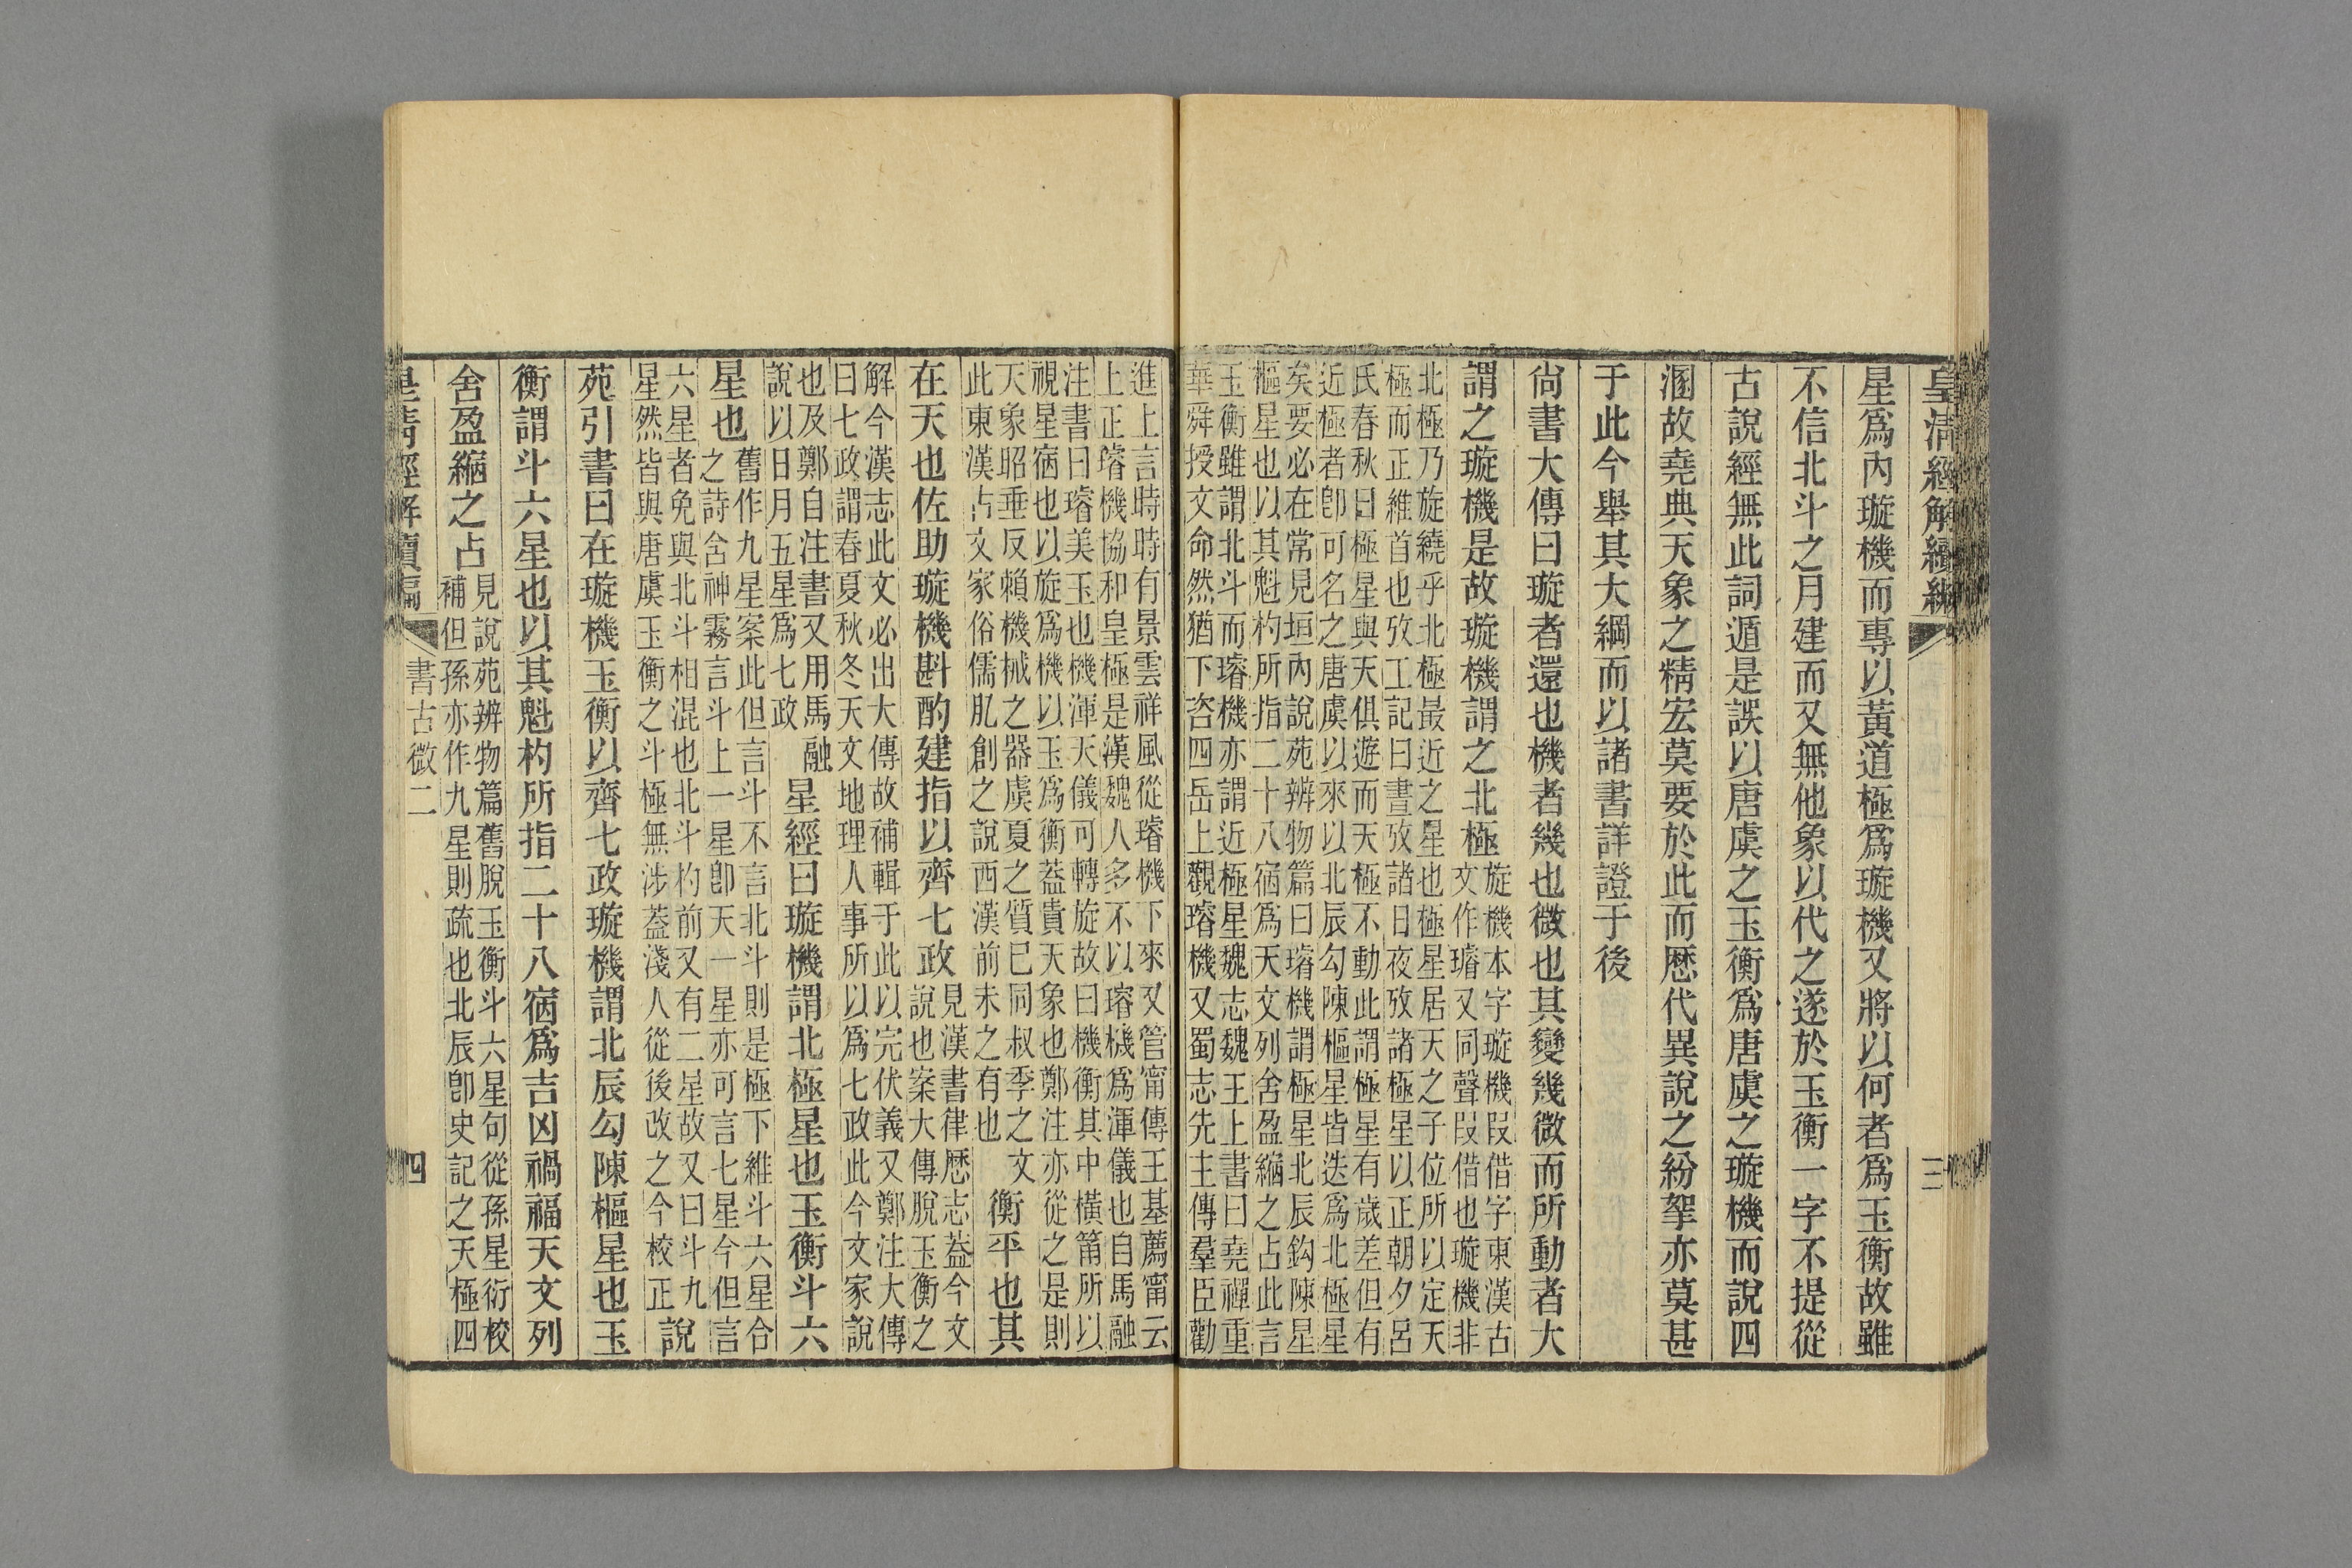 皇清經解續編
三
星爲內璇機而專以黃道極爲璇機又將以何者爲玉衡故雖
不信北斗之月建而又無他象以代之遂於玉衡一字不提從
古說經無此詞遁是誤以唐虞之玉衡爲唐虞之璇機而說四
溷故堯典天象之精宏莫要於此而厯代異說之紛挐亦莫甚
于此今舉其大綱而以諸書詳證于後
尙書大傳曰璇者還也機者幾也微也其變幾微而所動者大
謂之璇機是故璇機謂之北極
旋機本字璇機叚借字東漢古
文作璿又同聲叚借也璇機非
北極乃旋繞乎北極最近之星也極星居天之子位所以定天
極而正維首也攷工記曰晝攷諸日夜攷諸極星以正朝夕呂
氏春秋曰極星與天俱遊而天極不動此謂極星有歲差但有
近極者卽可名之唐虞以來以北辰勾陳樞星皆迭爲北極星
矣要必在常見垣內說苑辨物篇曰璿機謂極星北辰鈎陳星
樞星也以其魁杓所指二十八宿爲天文列舍盈縮之占此言
玉衡雖謂北斗而璿機亦謂近極星魏志魏王上書曰堯禪重
華舜授文命然猶下咨四岳上觀璿機又蜀志先主傳羣臣勸
進上言時時有景雲祥風從璿機下來又管甯傳王基薦甯云
上正璿機協和皇極是漢魏人多不以璿機爲渾儀也自馬融
注書曰璿美玉也機渾天儀可轉旋故曰機衡其中橫筩所以
視星宿也以旋爲機以玉爲衡葢貴天象也鄭注亦從之是則
天象昭垂反賴機械之器虞夏之質巳同叔季之文
此東漢占文家俗儒肊創之說西漢前未之有也
衡平也其
在天也佐助璇機斟酌建指以齊七政
見漢書律厯志葢今文
說也案大傳脫玉衡之
解今漢志此文必出大傳故補輯于此以完伏義又鄭注大傳
曰七政謂春夏秋冬天文地理人事所以爲七政此今文家說
也及鄭自注書又用馬融
說以日月五星爲七政
星經曰璇機謂北極星也玉衡斗六
星也
舊作九星案此但言斗不言北斗則是極下維斗六星合
之詩含神霧言斗上一星卽天一星亦可言七星今但言
六星者免與北斗相混也北斗杓前又有二星故又曰斗九
星然皆與唐虞玉衡之斗極無涉葢淺人從後改之今校正
說
苑引書曰在璇機玉衡以齊七政璇機謂北辰勾陳樞星也玉
衡謂斗六星也以其魁杓所指二十八宿爲吉凶禍福天文列
舍盈縮之占
見說苑辨物篇舊脫玉衡斗六星句從孫星衍校
補但孫亦作九星則疏也北辰卽史記之天極四
皇清經解續編
書古微二
四